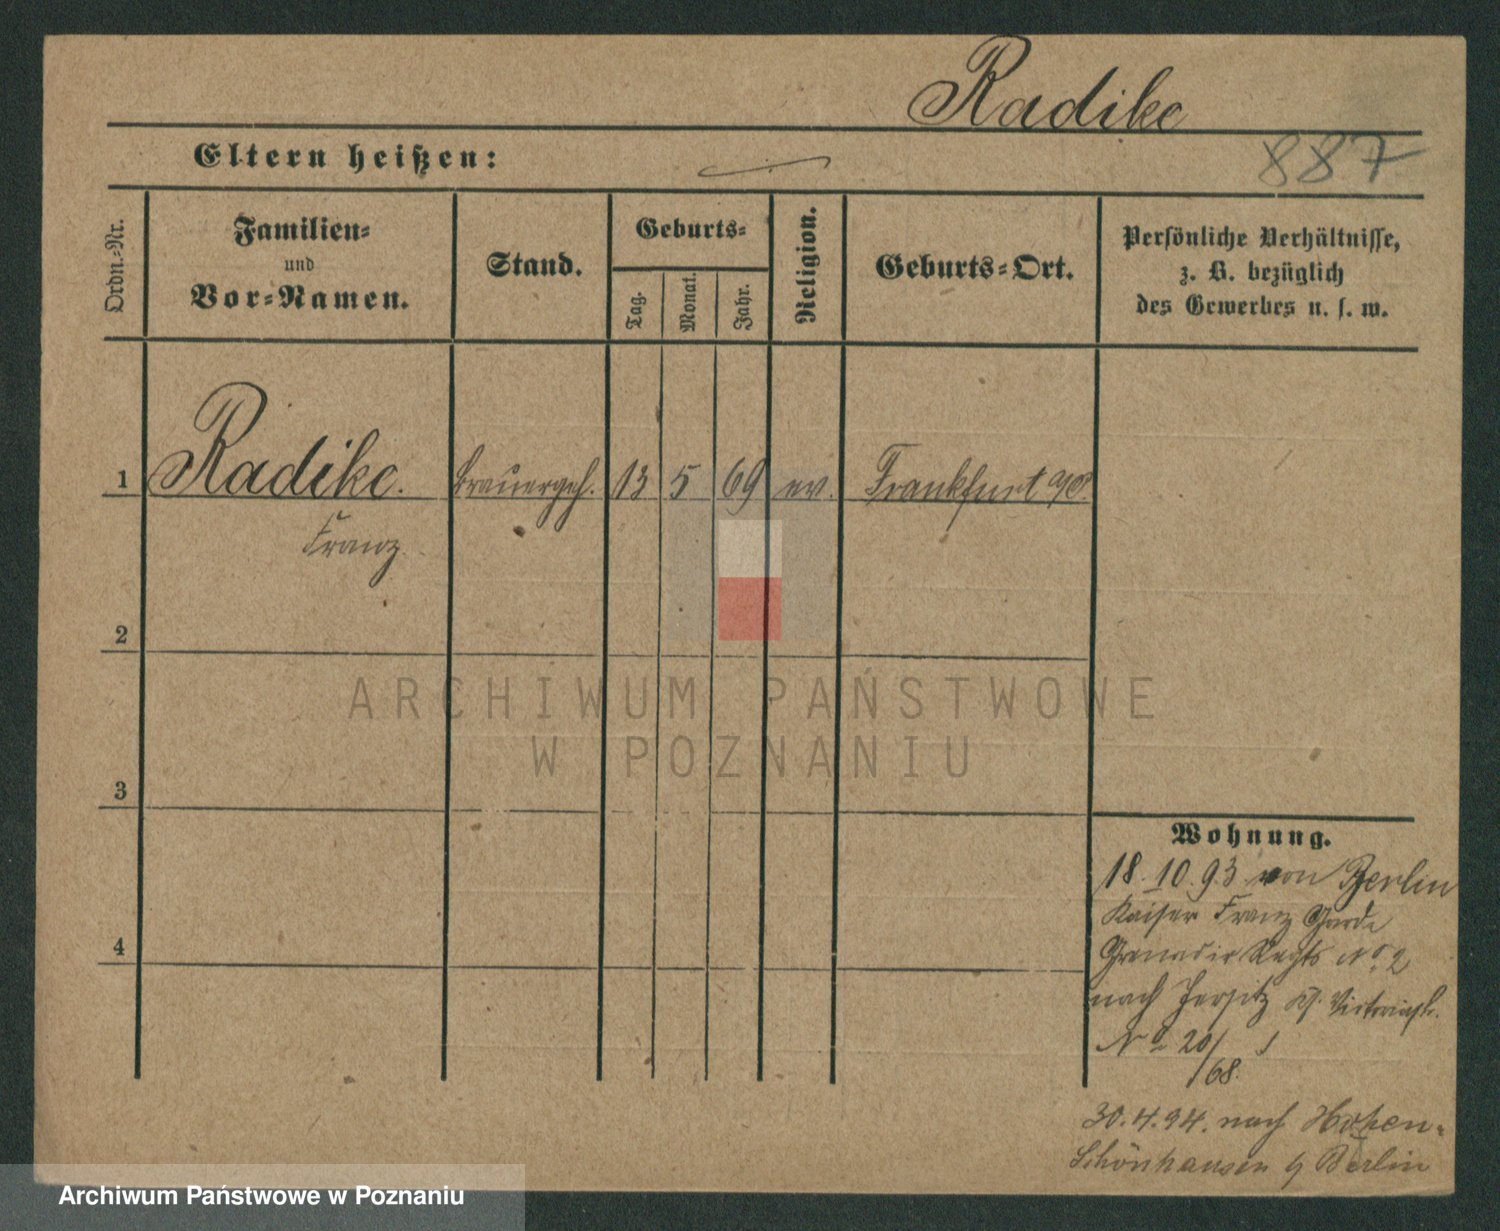 Radike
887
Eltern heißen:
Ordn.-Nr.
Familien-
und
Vor-Namen.
Stand.
Geburts-
Tag.
Monat.
Jahr.
Religion.
Geburts-Ort.
Persönliche Verhältnisse,
z. B. bezüglich
des Gewerbes u. s. w.
1 Radike. Brauergeh. 13 5 69 ev. Frankfurt a/O
Franz
2
3
4
ARCHIWUM PAŃSTWOWE
W POZNANIU
Wohnung.
18.10.93 von Berlin
Kaiser Franz Garde
Grenadir Regts No. 2
nach Jersitz Victoriastr.
No 20/
68.
30.4.94. nach Hohen-
Schönhausen b/ Berlin
Archiwum Państwowe w Poznaniu